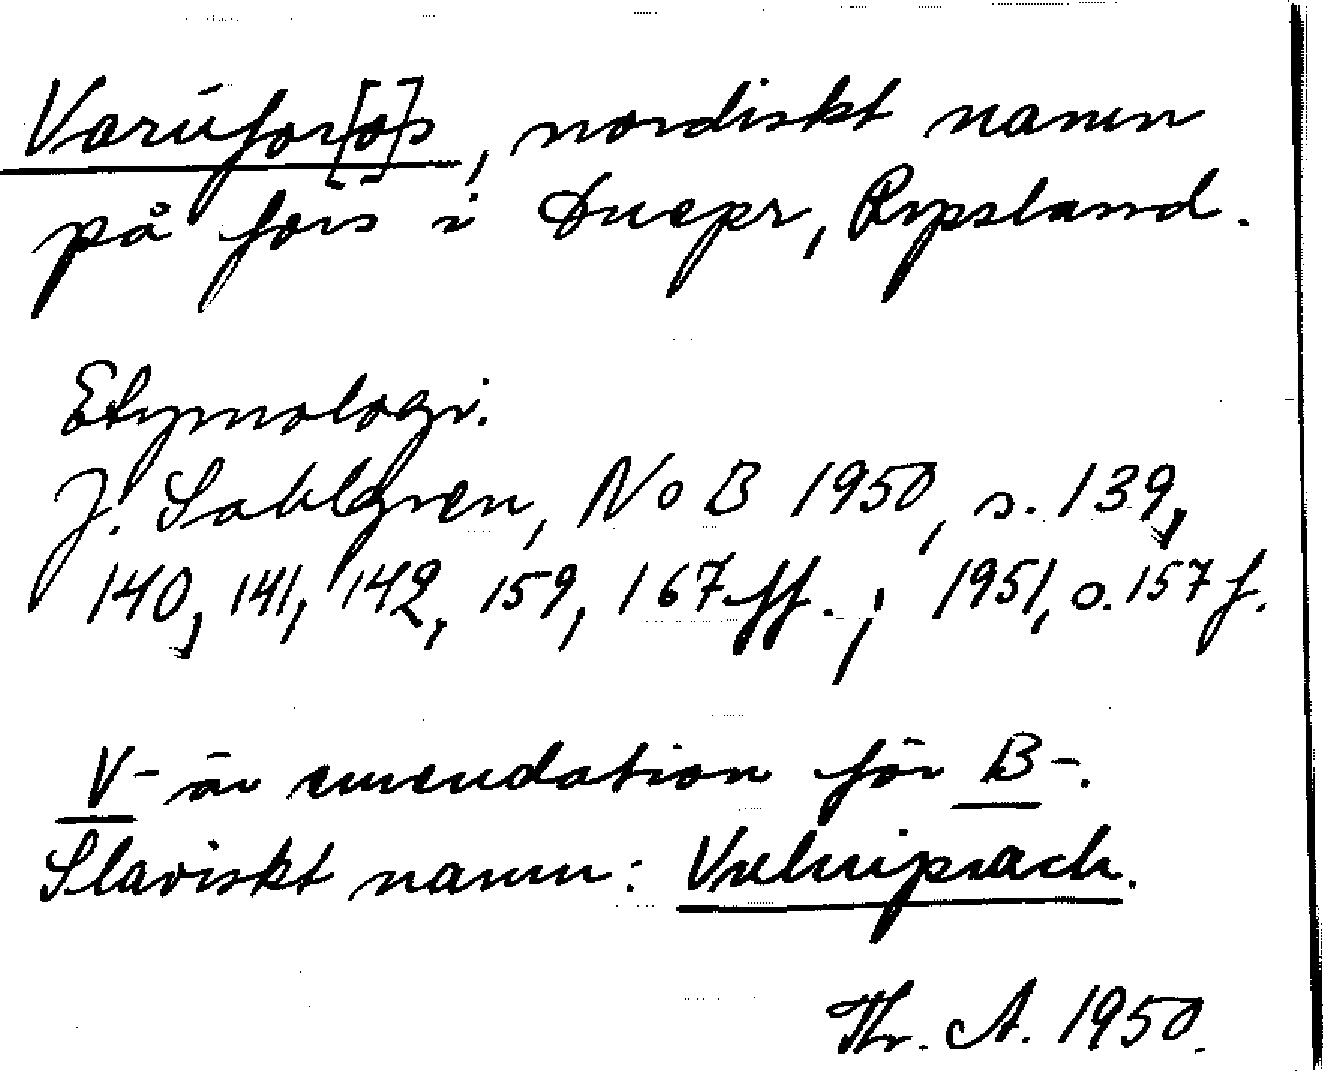 Varúfor[o]s, nordiskt namn
på fors i Dnepr, Ryssland.
Etymologi.
J. Sahlgren, NoB 1950, s. 139,
140, 141, 142, 159, 167 ff.; 1951, s. 157 f.
V- är emendation för B-.
Slaviskt namn: Vulniprach.
Thr. A. 1950.